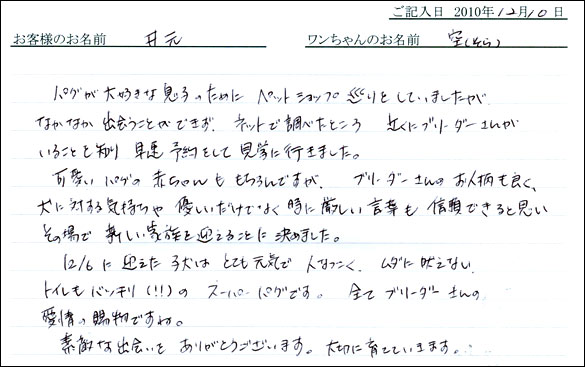 ご記入日 2010年12月10日
お客様のお名前 井元 ワンちゃんのお名前 空(そら)
パグが大好きな息子のために ペットショップ巡りをしていましたが、
なかなか出会うことができず、ネットで調べたところ 近くにブリーダーさんが
いることを知り 早速予約をして見学に行きました。
可愛いパグの赤ちゃんももちろんですが、ブリーダーさんのお人柄も良く、
犬に対する気持ちや 優しいだけでなく時に厳しい言葉も信頼できると思い
その場で新しい家族を迎えることに決めました。
12/6に迎えた子犬は とても元気で 人なつこく、ムダに吠えない、
トイレもバッチリ(!!)の スーパーパグです。全てブリーダーさんの
愛情の賜物ですね。
素敵な出会いを ありがとうございます。大切に育てていきます。